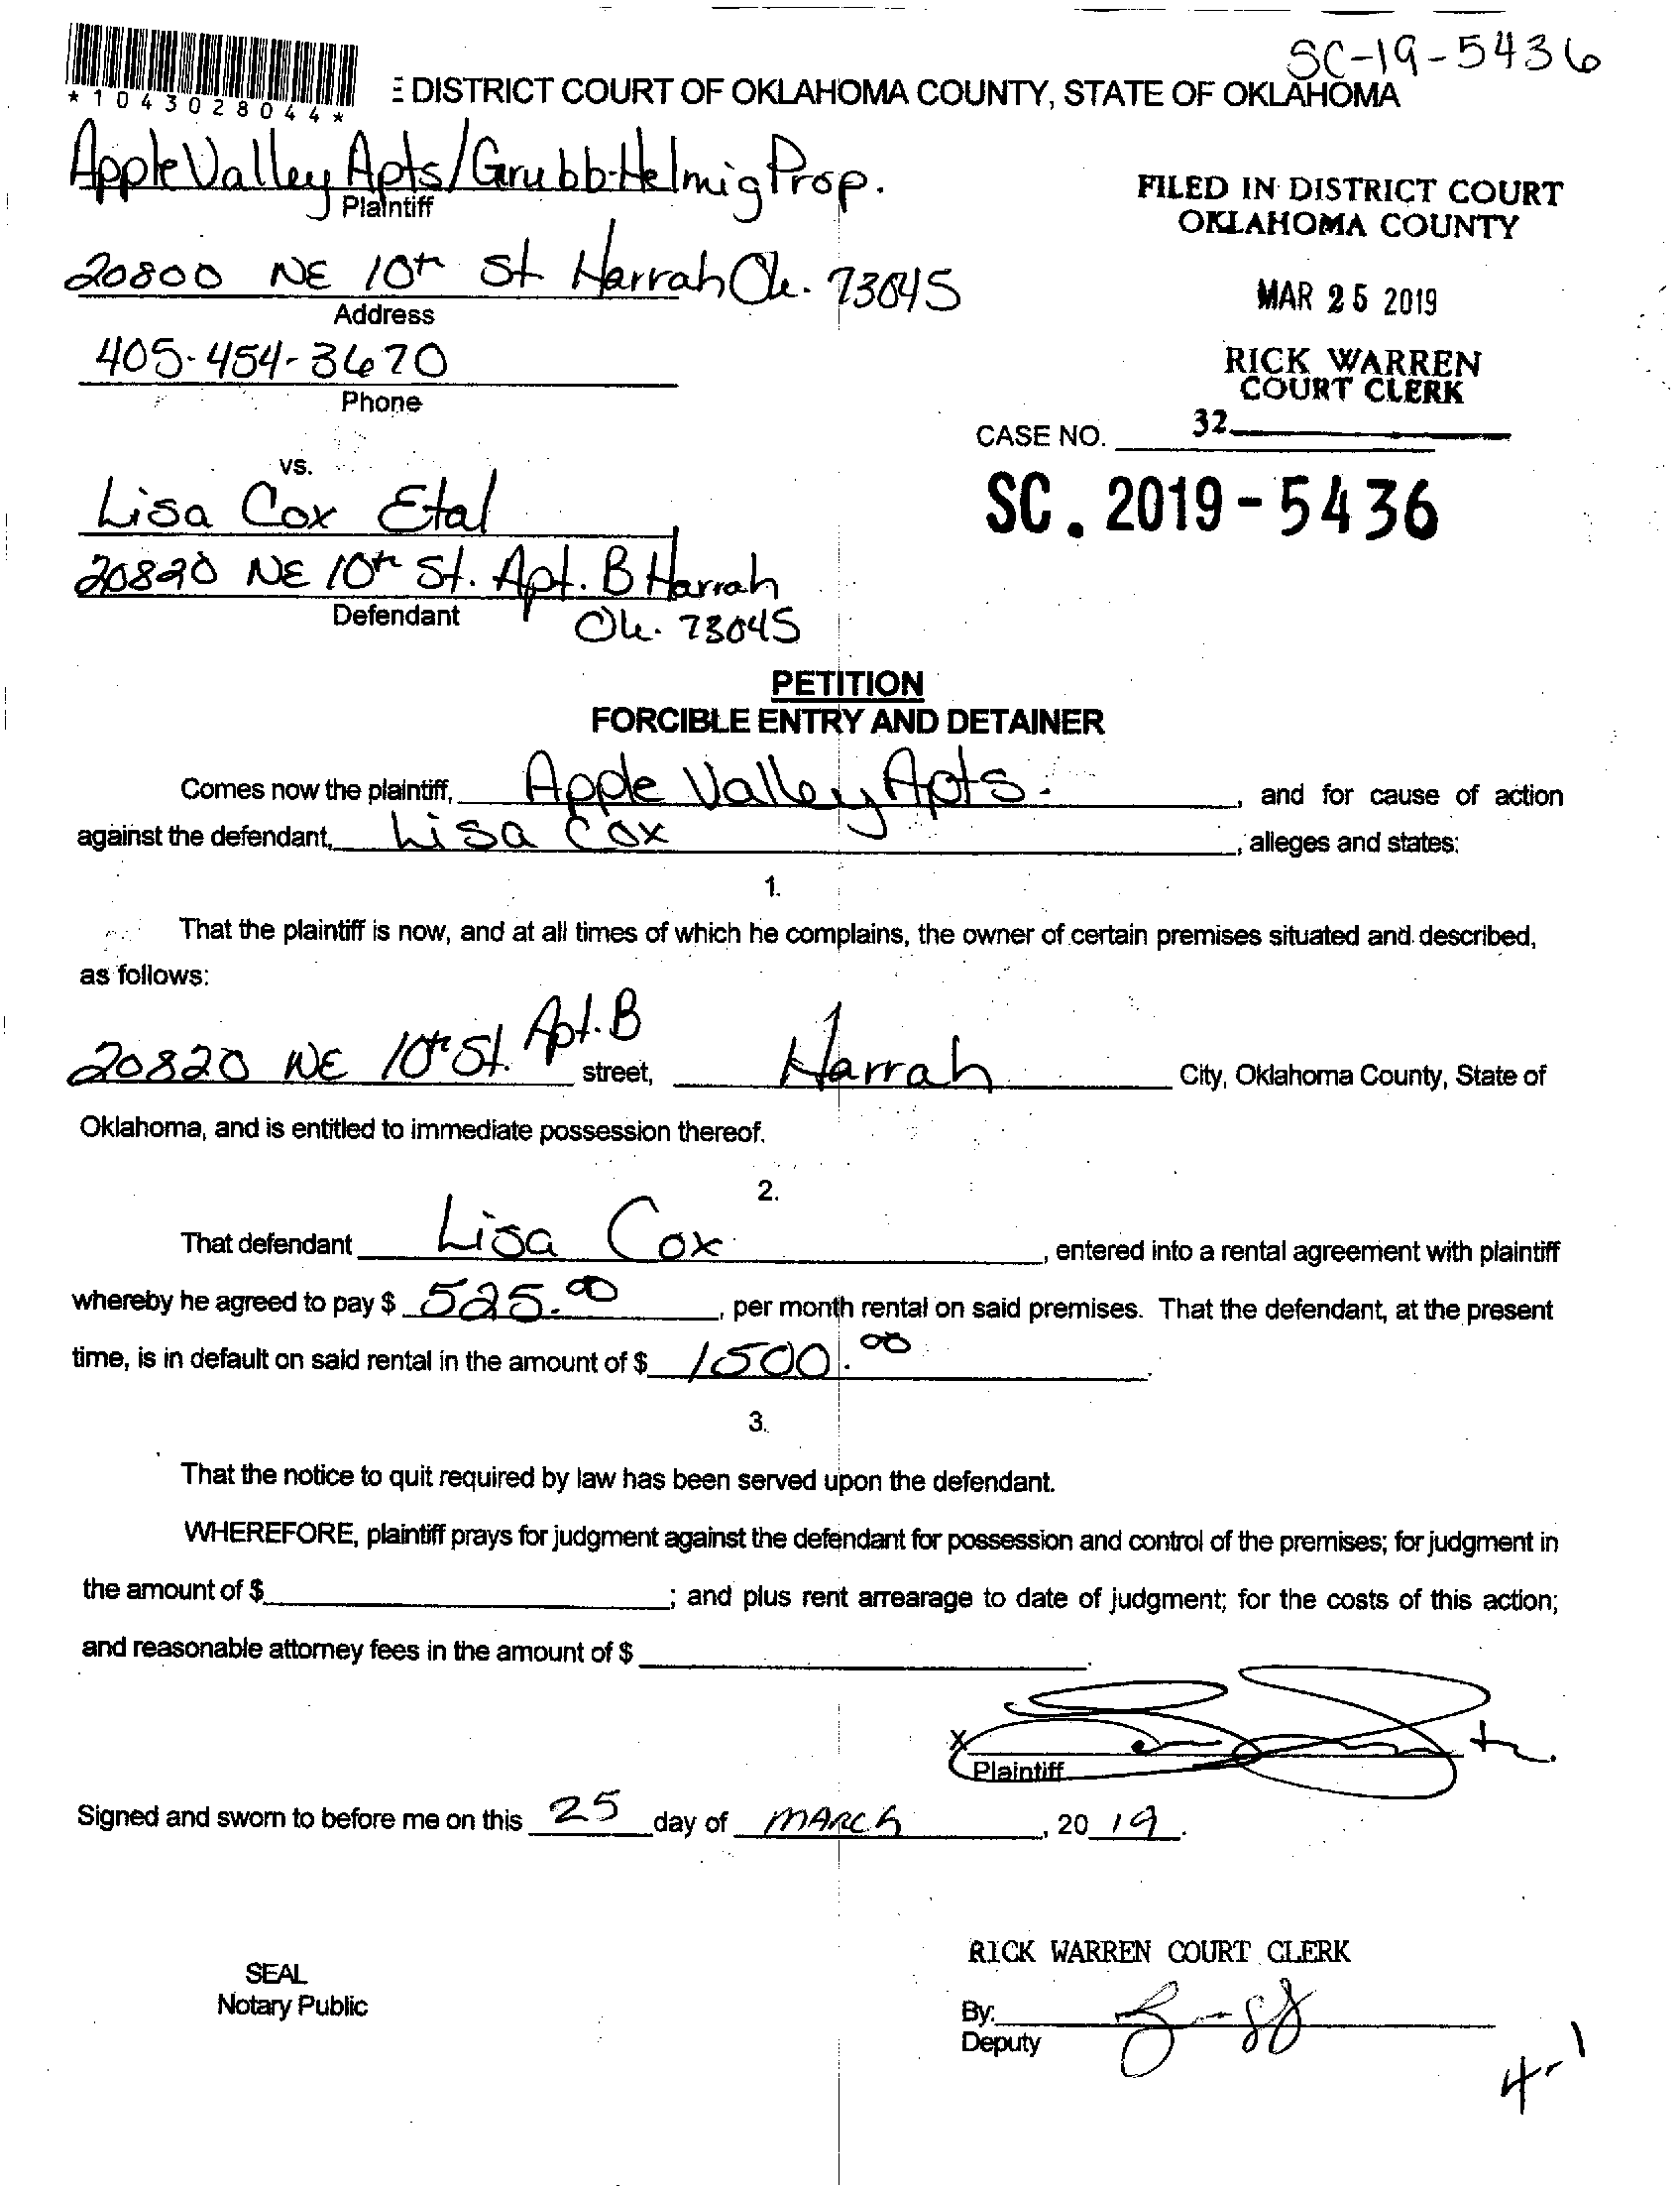 SC-19-5436
*1043028044*
E DISTRICT COURT OF OKLAHOMA COUNTY, STATE OF OKLAHOMA
Apple Valley Apts/Grubb-Helmig Prop.
Plaintiff
FILED IN DISTRICT COURT
OKLAHOMA COUNTY
20800 NE 10th St Harrah Ok. 73045
Address
MAR 25 2019
405-454-3670
Phone
RICK WARREN
COURT CLERK
32
CASE NO.
vs.
Lisa Cox Etal
SC. 2019-5436
20820 NE 10th St. Apt. B Harrah
Defendant
Ok. 73045
PETITION
FORCIBLE ENTRY AND DETAINER
Comes now the plaintiff, Apple Valley Apts. , and for cause of action
against the defendant, Lisa Cox , alleges and states:
1.
That the plaintiff is now, and at all times of which he complains, the owner of certain premises situated and described,
as follows:
20820 NE 10th St. Apt. B street, Harrah City, Oklahoma County, State of
Oklahoma, and is entitled to immediate possession thereof.
2.
That defendant Lisa Cox , entered into a rental agreement with plaintiff
whereby he agreed to pay $ 525.00 , per month rental on said premises. That the defendant, at the present
time, is in default on said rental in the amount of $ 1500.00 .
3.
That the notice to quit required by law has been served upon the defendant.
WHEREFORE, plaintiff prays for judgment against the defendant for possession and control of the premises; for judgment in
the amount of $ ; and plus rent arrearage to date of judgment; for the costs of this action;
and reasonable attorney fees in the amount of $ .
X
Plaintiff
Signed and sworn to before me on this 25 day of MARCh , 20 19 .
RICK WARREN COURT CLERK
SEAL
Notary Public
By:
Deputy
4-1